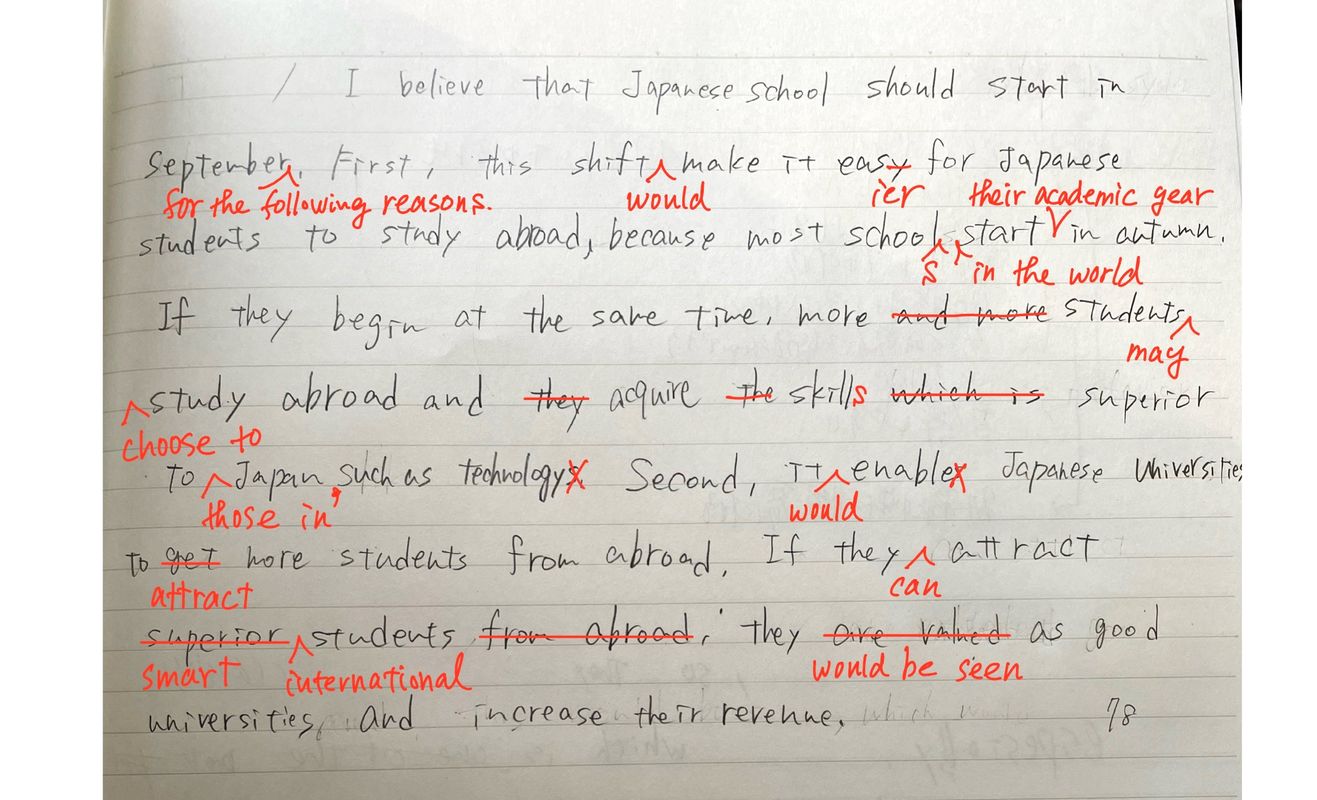 / I believe that Japanese school should start in
September. First, this shift make it easy for Japanese
for the following reasons. would ier their academic gear
students to study abroad, because most school start in autumn.
s in the world
If they begin at the same time, more and more students
may
study abroad and they acquire the skills which is superior
choose to
to Japan, such as technology. Second, it enables Japanese Universities
those in would
to get more students from abroad. If they attract
attract can
superior students from abroad, they are valued as good
smart international would be seen
universities, and increase their revenue. 78